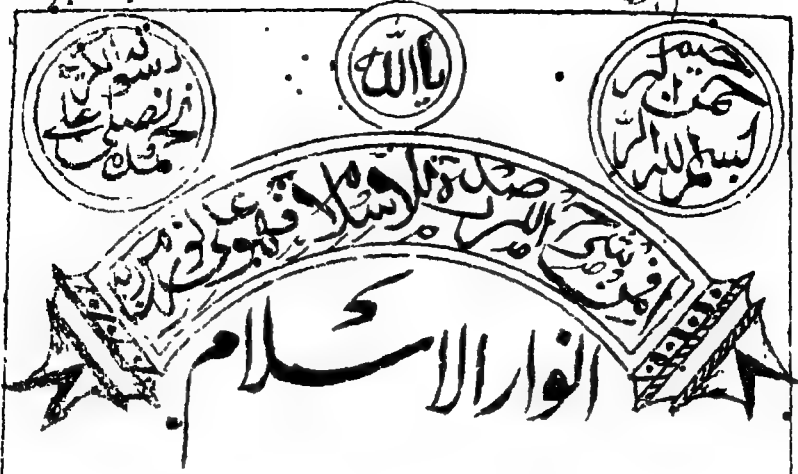 بسم الله الرحمن الرحيم
يا الله
نحمده و نصلى على رسوله الكريم
افمن شرح الله صدره للاسلام فهو على نور من ربه
انوار الاسلام